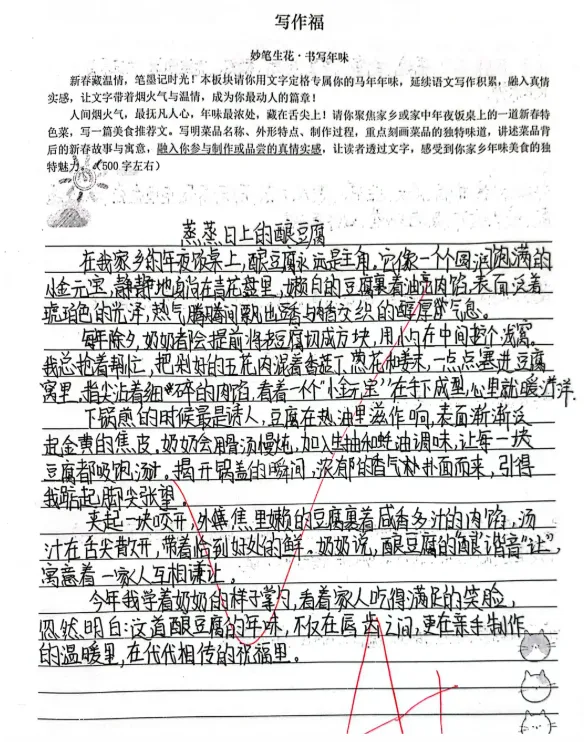 写作福
妙笔生花·书写年味
新春藏温情，笔墨记时光！本板块请你用文字定格专属你的马年年味，延续语文写作积累，融入真情
实感，让文字带着烟火气与温情，成为你最动人的篇章！
人间烟火气，最抚凡人心，年味最浓处，藏在舌尖上！请你聚焦家乡或家中年夜饭桌上的一道新春特
色菜，写一篇美食推荐文。写明菜品名称、外形特点、制作过程，重点刻画菜品的独特味道，讲述菜品背
后的新春故事与寓意，融入你参与制作或品尝的真情实感，让读者透过文字，感受到你家乡年味美食的独
特魅力。（500字左右）
蒸蒸日上的酿豆腐
在我家乡的年夜饭桌上，酿豆腐永远是主角。它像一个个圆润饱满的
小金元宝，静静地躺在青花盘里，嫩白的豆腐裹着油亮肉馅，表面泛着
琥珀色的光泽，热气腾腾间飘出酱香与肉香交织的醇厚气息。
每年除夕，奶奶都会提前将老豆腐切成方块，用小勺在中间挖个浅窝。
我总抢着帮忙，把剁好的五花肉混着香菇丁、葱花和姜末，一点点塞进豆腐
窝里，指尖沾着细碎的肉馅，看着一个个“小金元宝”在手下成型，心里就暖洋洋。
下锅煎的时候最是诱人，豆腐在热油里滋滋作响，表面渐渐泛
起金黄的焦皮，奶奶会用骨汤慢炖，加入生抽和蚝油调味，让每一块
豆腐都吸饱汤汁。揭开锅盖的瞬间，浓郁的香气扑面而来，引得
我踮起脚尖张望。
夹起一块咬开，外焦里嫩的豆腐裹着咸香多汁的肉馅，汤
汁在舌尖散开，带着恰到好处的鲜。奶奶说，酿豆腐的“酿”谐音“让”，
寓意着一家人互相谦让。
今年我学着奶奶的样子掌勺，看着家人吃得满足的笑脸，
忽然明白：这道酿豆腐的年味，不仅在唇齿之间，更在亲手制作
的温暖里，在代代相传的祝福里。
A+